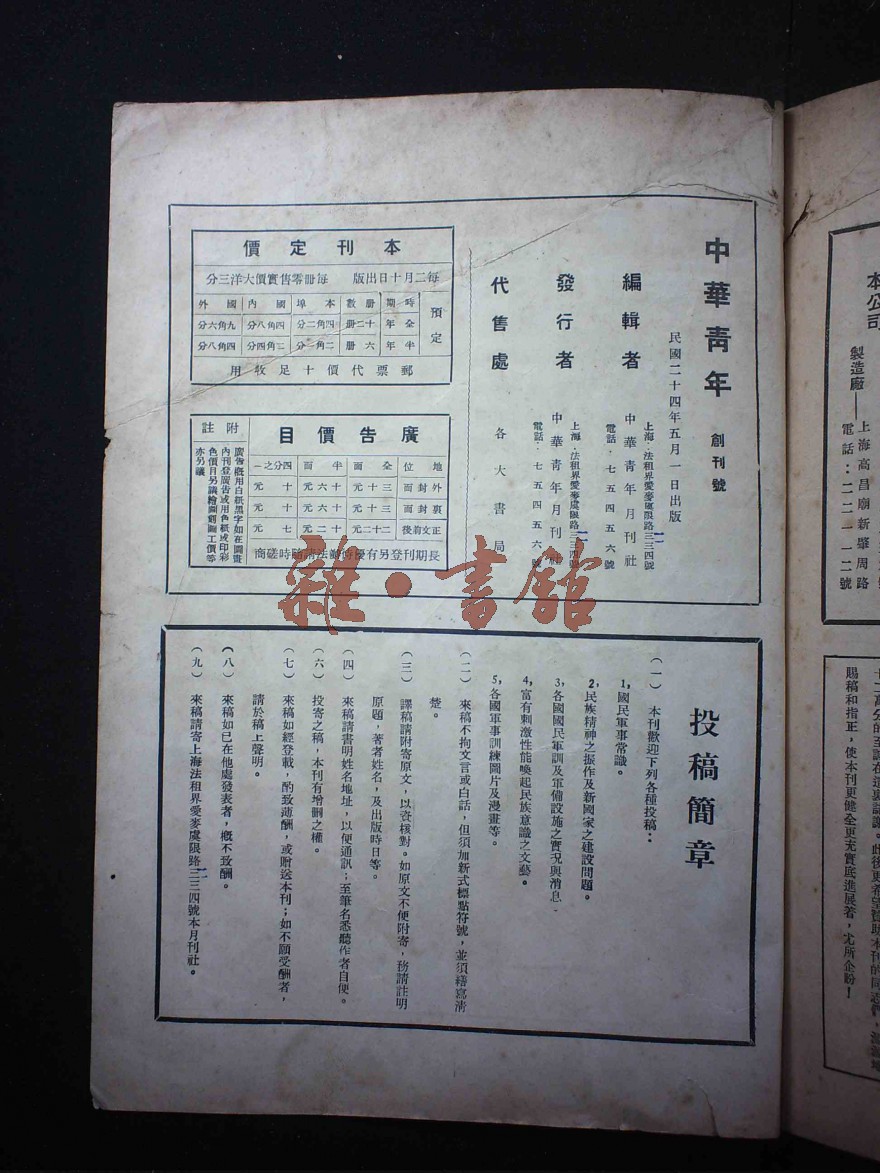 中華靑年 創刊號
民國二十四年五月一日出版
編輯者 中華靑年月刊社
上海・法租界愛麥虞限路三三四號
電話・七五四五六號
發行者 中華靑年月刊社
上海・法租界愛麥虞限路三三四號
電話・七五四五六號
代售處 各大書局
本刊定價
每二月十日出版 每冊零售實價大洋三分
預定
時期 冊數 本埠 國內 國外
全年 十二冊 四角二分 四角八分 九角六分
半年 六冊 二角一分 二角四分 四角八分
郵票代價十足收用
廣告價目
地位 全面 半面 四分之一
外封面 三十元 十六元 十元
裏封面 三十元 十六元 十元
正文前後 二十二元 十二元 七元
長期刊登另有優待辦法請臨時磋商
附註
廣告槪用白紙黑字如在圖畫
內刊登廣告或用色紙或印彩
色價目另議繪圖刻圖工價等
亦另議
投稿簡章
(一) 本刊歡迎下列各種投稿：
1,國民軍事常識。
2,民族精神之振作及新國家之建設問題。
3,各國國民軍訓及軍備設施之實況與消息.
4,富有刺激性能喚起民族意識之文藝。
5,各國軍事訓練圖片及漫畫等。
(二) 來稿不拘文言或白話，但須加新式標點符號，並須繕寫淸
楚。
(三) 譯稿請附寄原文，以資核對。如原文不便附寄，務請註明
原題，著者姓名，及出版時日等。
(四) 來稿請書明姓名地址，以便通訊；至筆名悉聽作者自便。
(六) 投寄之稿，本刊有增刪之權。
(七) 來稿如經登載，酌致薄酬，或贈送本刊；如不願受酬者，
請於稿上聲明。
(八) 來稿如已在他處發表者，槪不致酬。
(九) 來稿請寄上海法租界愛麥虞限路三三四號本月刊社。
雜・書館
本公司
製造廠——上海高昌廟新肇周路
電話：二二一一二號
賜稿和指正，使本刊更健全更充實底進展著，尤所企盼！